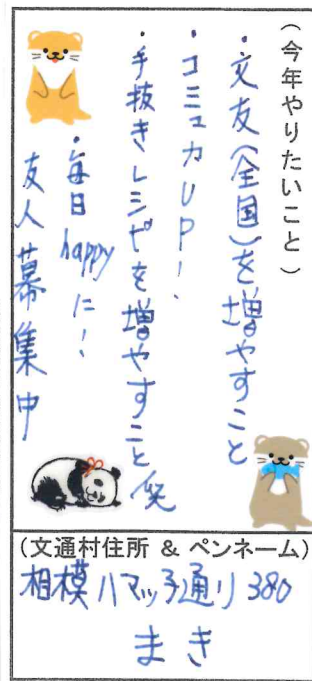 (今年やりたいこと)
・文友(全国)を増やすこと
・コミュカUP!、
・手抜きレシピを増やすこと笑
・毎日happyに!
友人募集中
(文通村住所 & ペンネーム)
相模ハマッ子通り380
まき